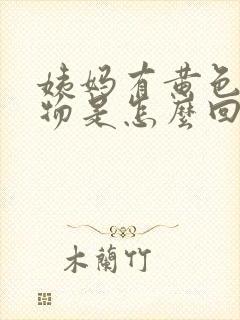 姨妈有黄色
物是怎麼回
木蘭竹